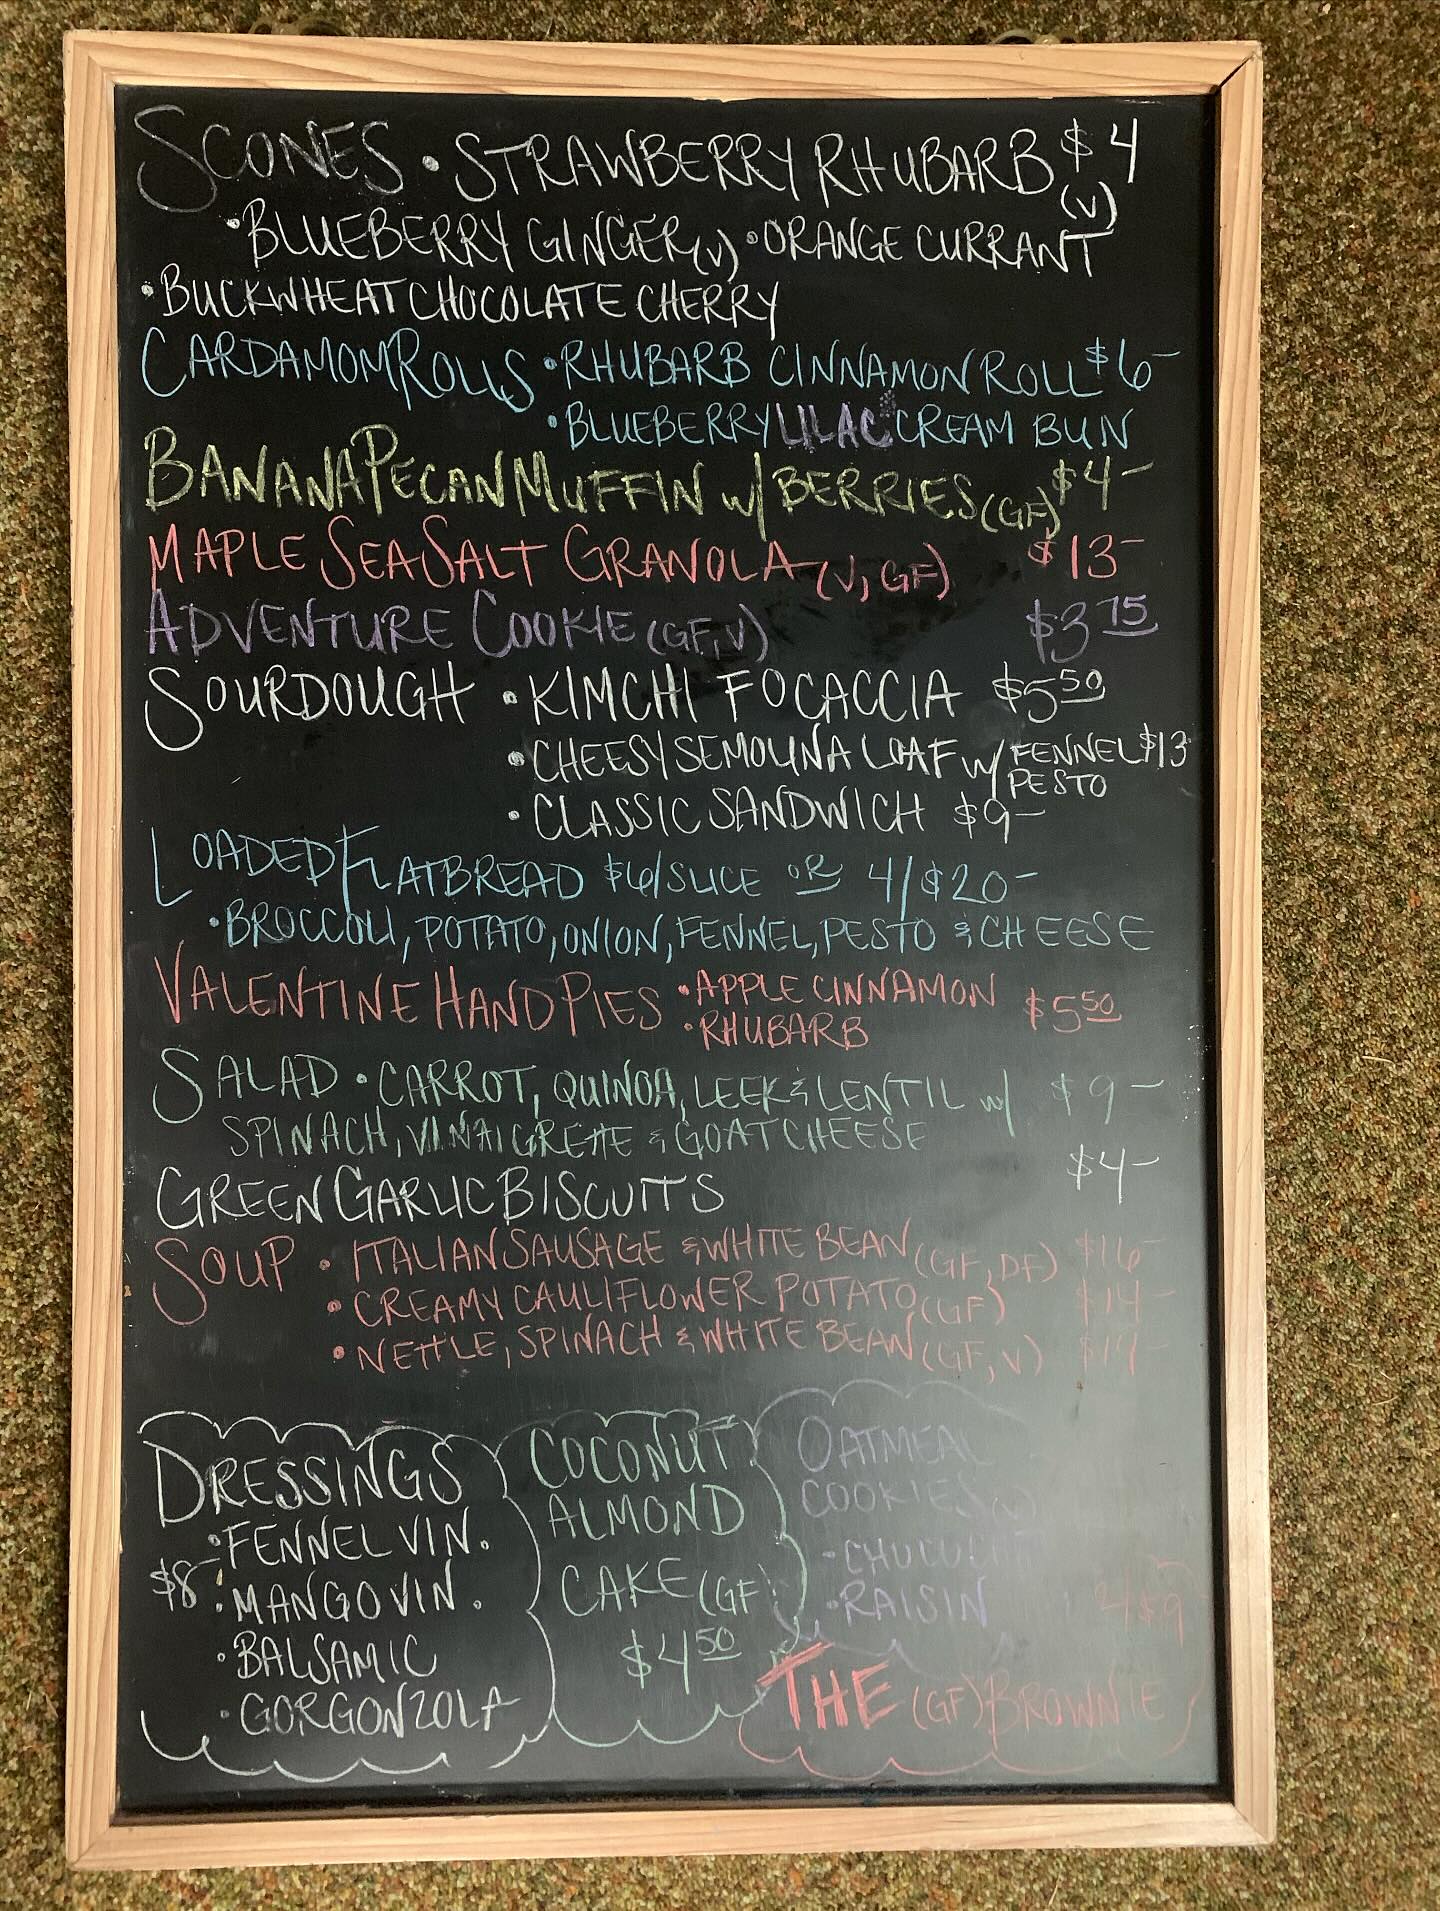 SCONES • STRAWBERRY RHUBARB $4
(V)
• BLUEBERRY GINGER (V) • ORANGE CURRANT
• BUCKWHEAT CHOCOLATE CHERRY
CARDAMOM ROLLS • RHUBARB CINNAMON ROLL $6-
• BLUEBERRY LILAC CREAM BUN
BANANA PECAN MUFFIN w/ BERRIES (GF) $4-
MAPLE SEA SALT GRANOLA (V, GF) $13-
ADVENTURE COOKIE (GF, V) $3 75
SOURDOUGH • KIMCHI FOCACCIA $5 50
• CHEESY SEMOLINA LOAF w/ FENNEL $13
PESTO
• CLASSIC SANDWICH $9-
LOADED FLATBREAD $6/SLICE OR 4/$20-
• BROCCOLI, POTATO, ONION, FENNEL, PESTO & CHEESE
VALENTINE HAND PIES • APPLE CINNAMON $5 50
• RHUBARB
SALAD • CARROT, QUINOA, LEEK & LENTIL w/ $9-
SPINACH, VINAIGRETTE & GOAT CHEESE
GREEN GARLIC BISCUITS $4-
SOUP • ITALIAN SAUSAGE & WHITE BEAN (GF, DF) $16-
• CREAMY CAULIFLOWER POTATO (GF) $14-
• NETTLE, SPINACH & WHITE BEAN (GF, V)
DRESSINGS
$8- • FENNEL VIN.
• MANGO VIN.
• BALSAMIC
• GORGONZOLA
COCONUT
ALMOND
CAKE (GF)
$4 50
OATMEAL
COOKIES (V)
• CHOCOLATE
• RAISIN
THE (GF) BROWNIE